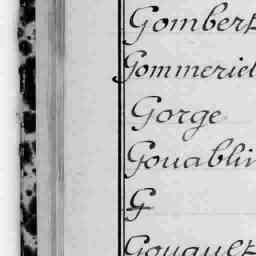 Gombert
Gommeriel
Gorge
Gouablin
G
Gouault